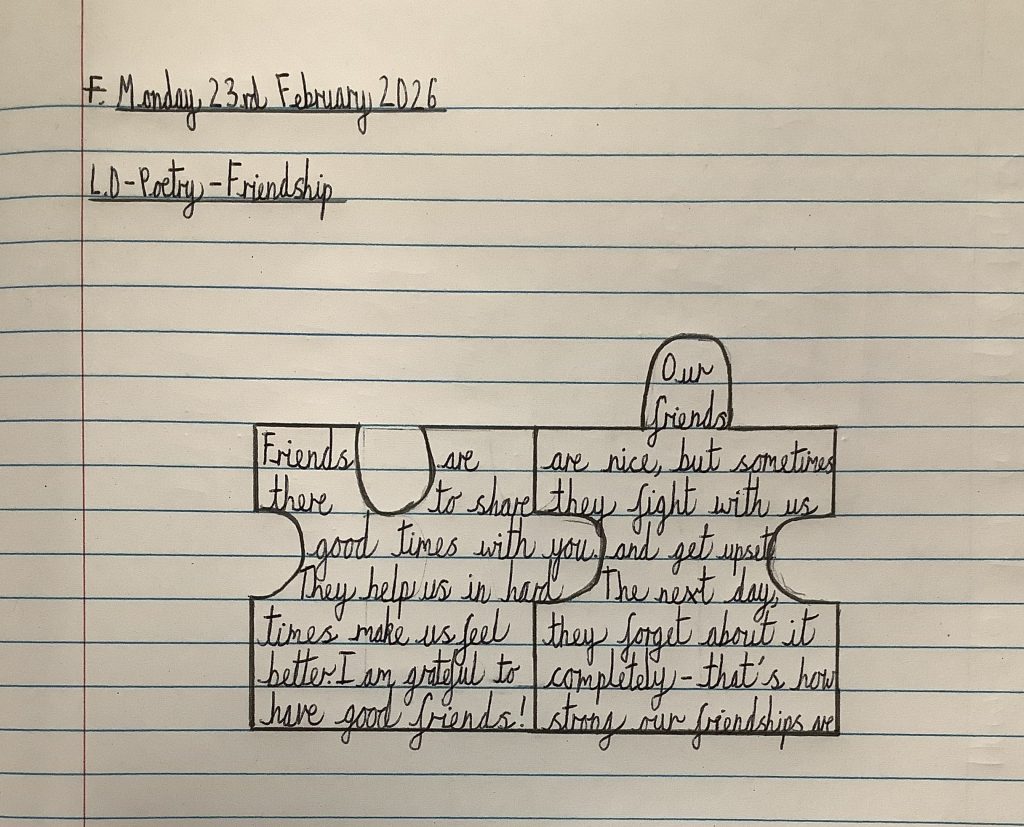 F. Monday 23rd February 2026
L.O-Poetry-Friendship
Friends are
there to share
good times with you.
They help us in hard
times make us feel
better. I am grateful to
have good friends!
Our
friends
are nice, but sometimes
they fight with us
and get upset
The next day,
they forget about it
completely - that's how
strong our friendships are